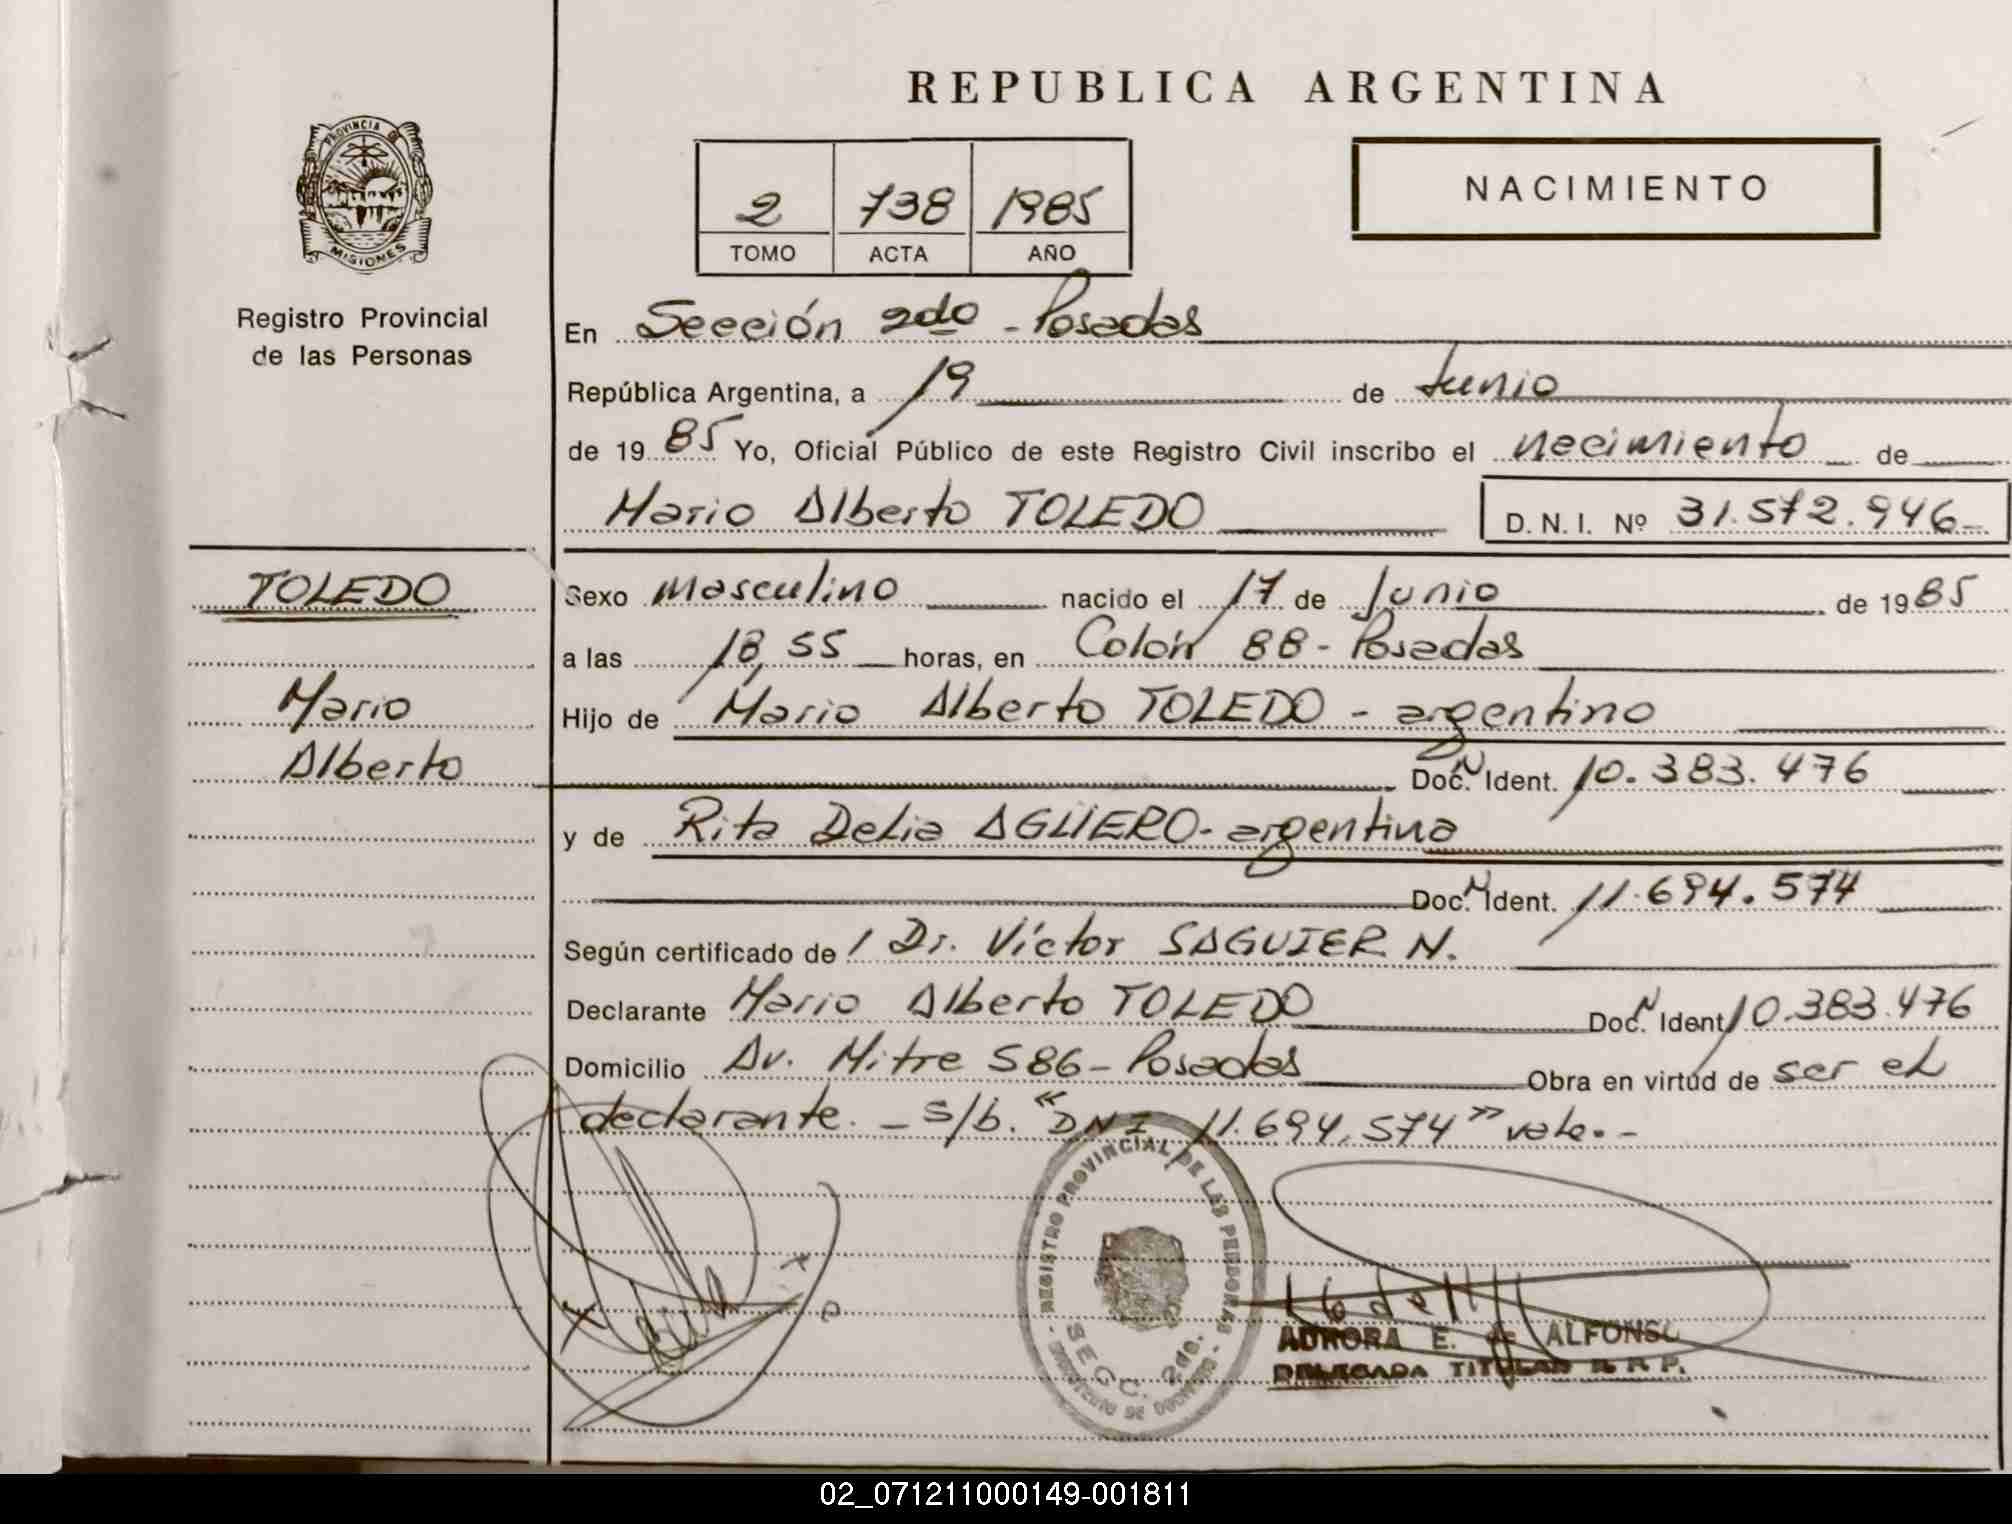 REPUBLICA ARGENTINA
PROVINCIA DE
MISIONES
Registro Provincial
de las Personas
2 738 1985
TOMO ACTA AÑO
NACIMIENTO
En Sección 2do - Posadas
República Argentina, a 19 de Junio
de 19 85 Yo, Oficial Público de este Registro Civil inscribo el nacimiento de
Mario Alberto TOLEDO D. N. I. Nº 31.572.946
TOLEDO
Mario
Alberto
Sexo masculino nacido el 17 de Junio de 19 85
a las 18,55 horas, en Colón 88 - Posadas
Hijo de Mario Alberto TOLEDO - argentino
Doc. N Ident. 10.383.476
y de Rita Delia AGÜERO - argentina
Doc. N Ident. 11.694.574
Según certificado de / Dr. Víctor SAGUIER N.
Declarante Mario Alberto TOLEDO Doc. N Ident 10.383.476
Domicilio Av. Mitre 586 - Posadas Obra en virtud de ser el
declarante. - s/b. "DNI 11.694.574" vale. -
REGISTRO PROVINCIAL DE LAS PERSONAS
SECC. 2da.
AURORA E. de ALFONSO
DELEGADA TITULAR R. P. P.
02_071211000149-001811